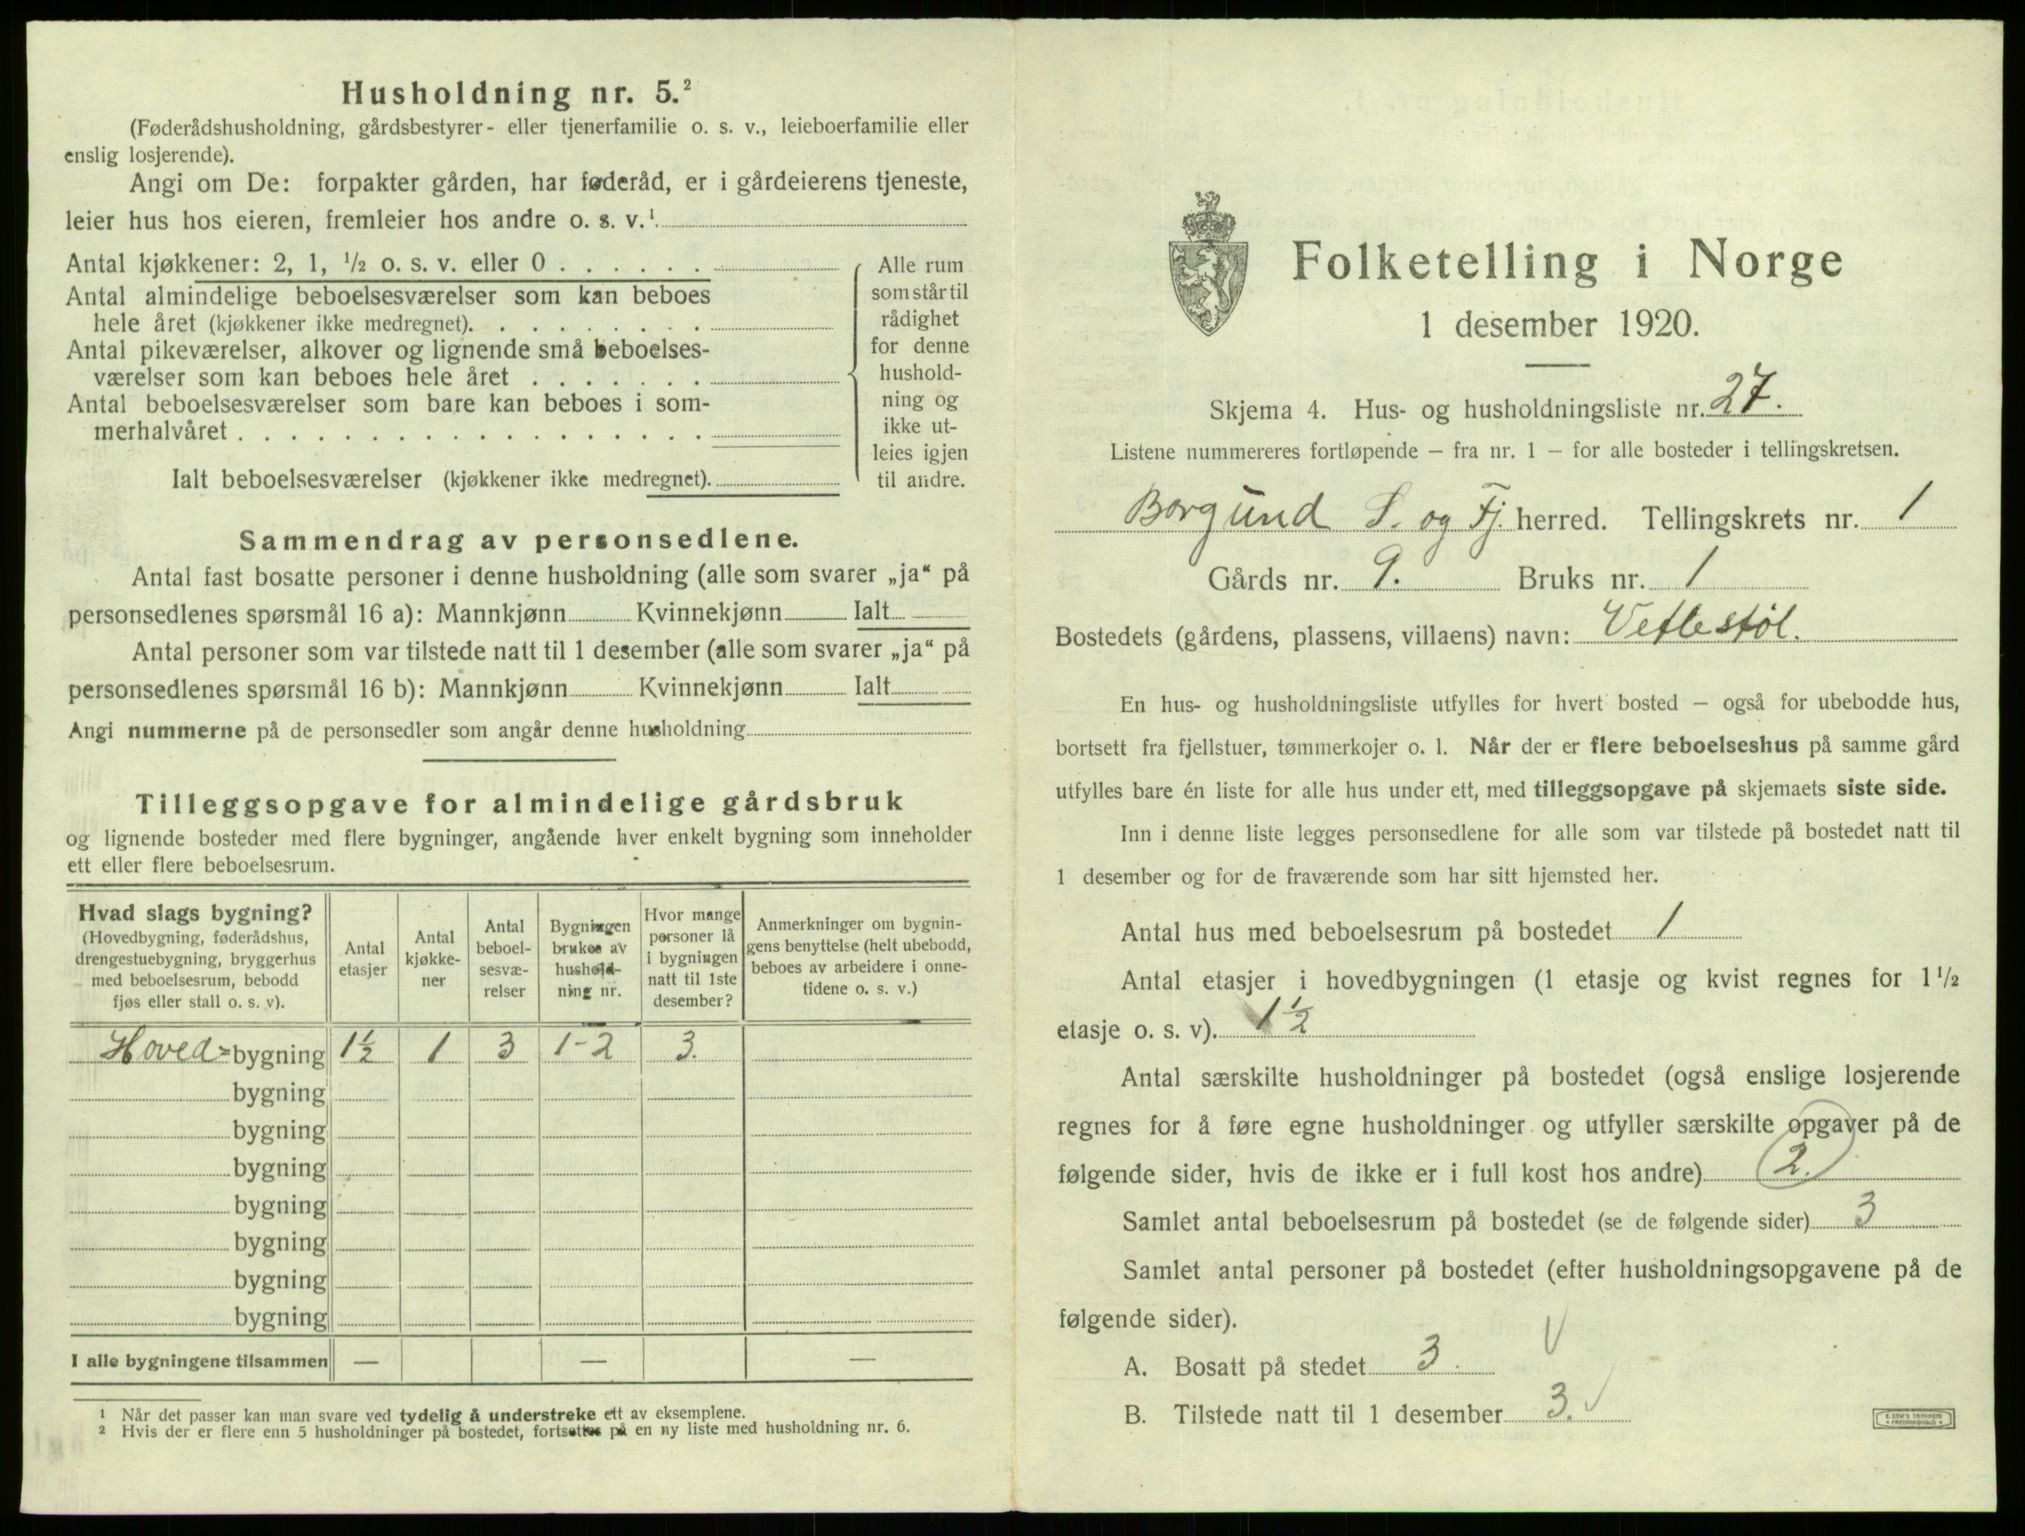 Husholdning nr. 5.²
(Føderådshusholdning, gårdsbestyrer- eller tjenerfamilie o. s. v., leieboerfamilie eller
enslig losjerende).
Angi om De: forpakter gården, har føderåd, er i gårdeierens tjeneste,
leier hus hos eieren, fremleier hos andre o. s. v.¹
Antal kjøkkener: 2, 1, ½ o. s. v. eller 0 . . . . . .
Antal almindelige beboelsesværelser som kan beboes
hele året (kjøkkener ikke medregnet). . . . . . . . .
Antal pikeværelser, alkover og lignende små beboelses-
værelser som kan beboes hele året . . . . . . .
Antal beboelsesværelser som bare kan beboes i som-
merhalvåret . . . . . . . . . . . . . . . . . .
Ialt beboelsesværelser (kjøkkener ikke medregnet).
Alle rum
som står til
rådighet
for denne
hushold-
ning og
ikke ut-
leies igjen
til andre.
Sammendrag av personsedlene.
Antal fast bosatte personer i denne husholdning (alle som svarer „ja“ på
personsedlenes spørsmål 16 a): Mannkjønn Kvinnekjønn Ialt
Antal personer som var tilstede natt til 1 desember (alle som svarer „ja“ på
personsedlenes spørsmål 16 b): Mannkjønn Kvinnekjønn Ialt
Angi nummerne på de personsedler som angår denne husholdning
Tilleggsopgave for almindelige gårdsbruk
og lignende bosteder med flere bygninger, angående hver enkelt bygning som inneholder
ett eller flere beboelsesrum.
Hvad slags bygning?
(Hovedbygning, føderådshus,
drengestuebygning, bryggerhus
med beboelsesrum, bebodd
fjøs eller stall o. s. v).
Antal
etasjer
Antal
kjøkke-
ner
Antal
beboel-
sesvæ-
relser
Bygningen
brukes av
hushold-
ning nr.
Hvor mange
personer lå
i bygningen
natt til 1ste
desember?
Anmerkninger om bygnin-
gens benyttelse (helt ubebodd,
beboes av arbeidere i onne-
tidene o. s. v.)
Hoved-bygning 1½ 1 3 1-2 3.
bygning
bygning
bygning
bygning
bygning
bygning
bygning
I alle bygningene tilsammen — — —
¹ Når det passer kan man svare ved tydelig å understreke ett av eksemplene.
² Hvis der er flere enn 5 husholdninger på bostedet, fortsettes på en ny liste med husholdning nr. 6.
Folketelling i Norge
1 desember 1920.
Skjema 4. Hus- og husholdningsliste nr. 27.
Listene nummereres fortløpende – fra nr. 1 – for alle bosteder i tellingskretsen.
Borgund S. og Fj. herred. Tellingskrets nr. 1
Gårds nr. 9. Bruks nr. 1
Bostedets (gårdens, plassens, villaens) navn: Vetlestøl.
En hus- og husholdningsliste utfylles for hvert bosted – også for ubebodde hus,
bortsett fra fjellstuer, tømmerkojer o. l. Når der er flere beboelseshus på samme gård
utfylles bare én liste for alle hus under ett, med tilleggsopgave på skjemaets siste side.
Inn i denne liste legges personsedlene for alle som var tilstede på bostedet natt til
1 desember og for de fraværende som har sitt hjemsted her.
Antal hus med beboelsesrum på bostedet 1
Antal etasjer i hovedbygningen (1 etasje og kvist regnes for 1½
etasje o. s. v). 1½
Antal særskilte husholdninger på bostedet (også enslige losjerende
regnes for å føre egne husholdninger og utfyller særskilte opgaver på de
følgende sider, hvis de ikke er i full kost hos andre) 2.
Samlet antal beboelsesrum på bostedet (se de følgende sider) 3
Samlet antal personer på bostedet (efter husholdningsopgavene på de
følgende sider).
A. Bosatt på stedet 3.
B. Tilstede natt til 1 desember 3.